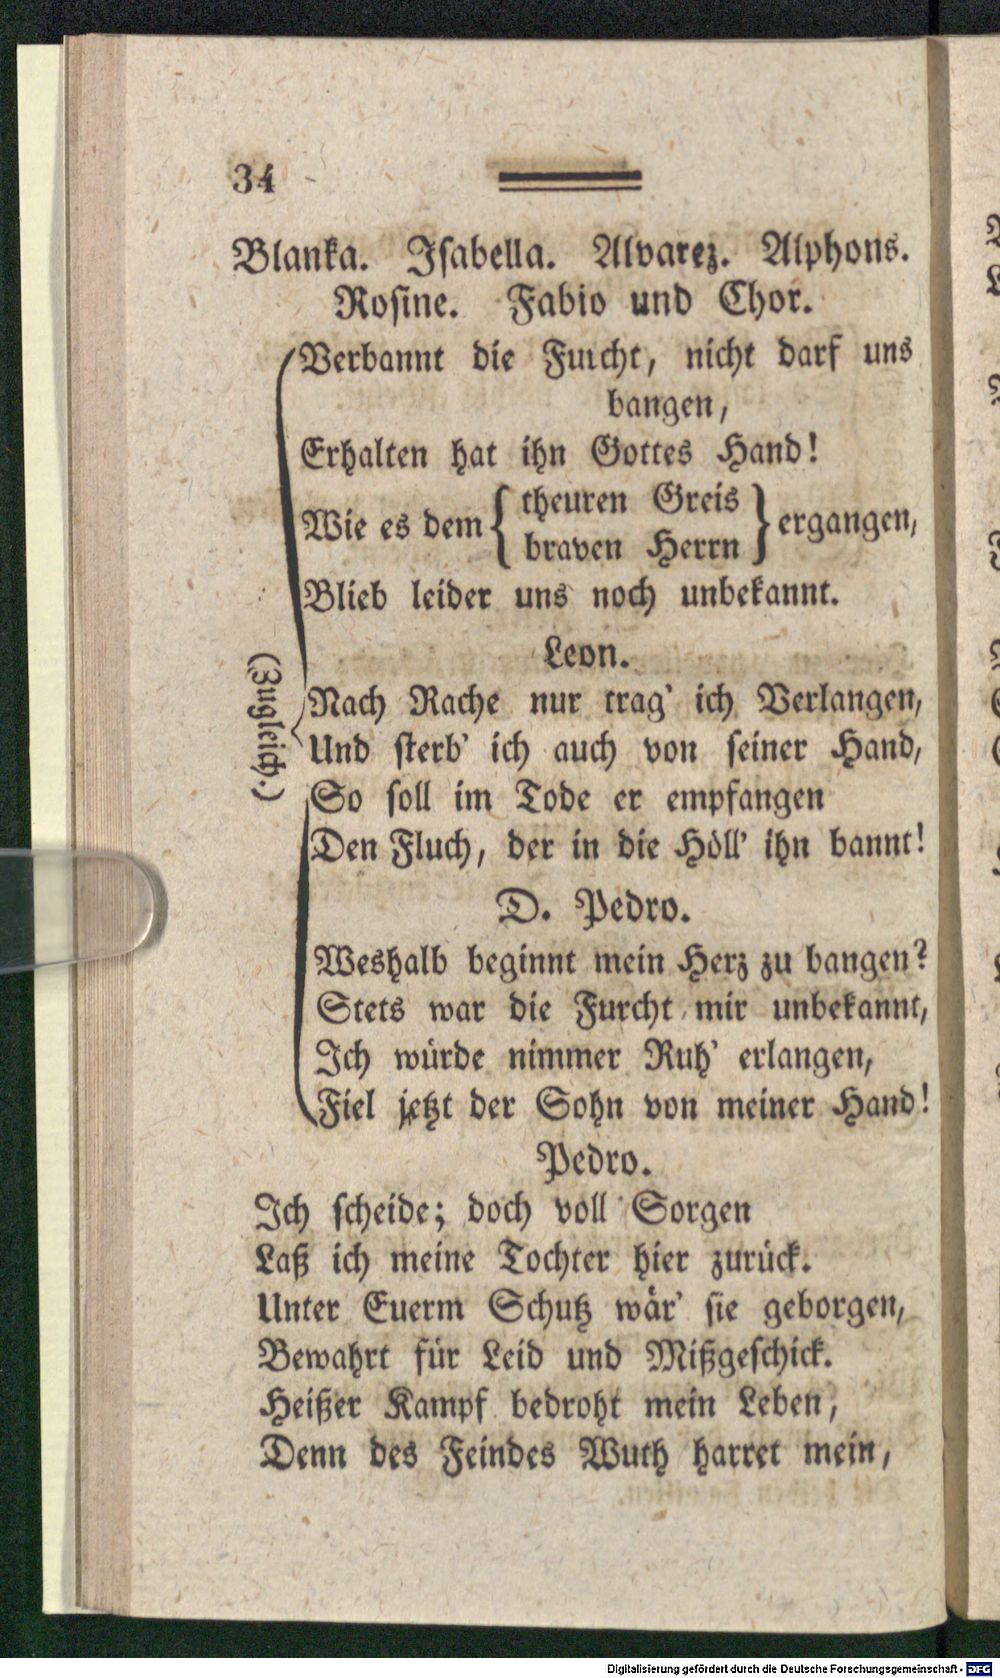 34
Blanka. Iſabella. Alvarez. Alphons.
Roſine. Fabio und Chor.
Verbannt die Furcht, nicht darf uns
bangen,
Erhalten hat ihn Gottes Hand!
Wie es dem { theuren Greis
braven Herrn } ergangen,
Blieb leider uns noch unbekannt.
Leon.
(Zugleich.)
Nach Rache nur trag' ich Verlangen,
Und ſterb' ich auch von ſeiner Hand,
So ſoll im Tode er empfangen
Den Fluch, der in die Höll' ihn bannt!
D. Pedro.
Weshalb beginnt mein Herz zu bangen?
Stets war die Furcht mir unbekannt,
Ich würde nimmer Ruh' erlangen,
Fiel jetzt der Sohn von meiner Hand!
Pedro.
Ich ſcheide; doch voll Sorgen
Laß ich meine Tochter hier zurück.
Unter Euerm Schutz wär' ſie geborgen,
Bewahrt für Leid und Mißgeſchick.
Heißer Kampf bedroht mein Leben,
Denn des Feindes Wuth harret mein,
Digitalisierung gefördert durch die Deutsche Forschungsgemeinschaft - DFG